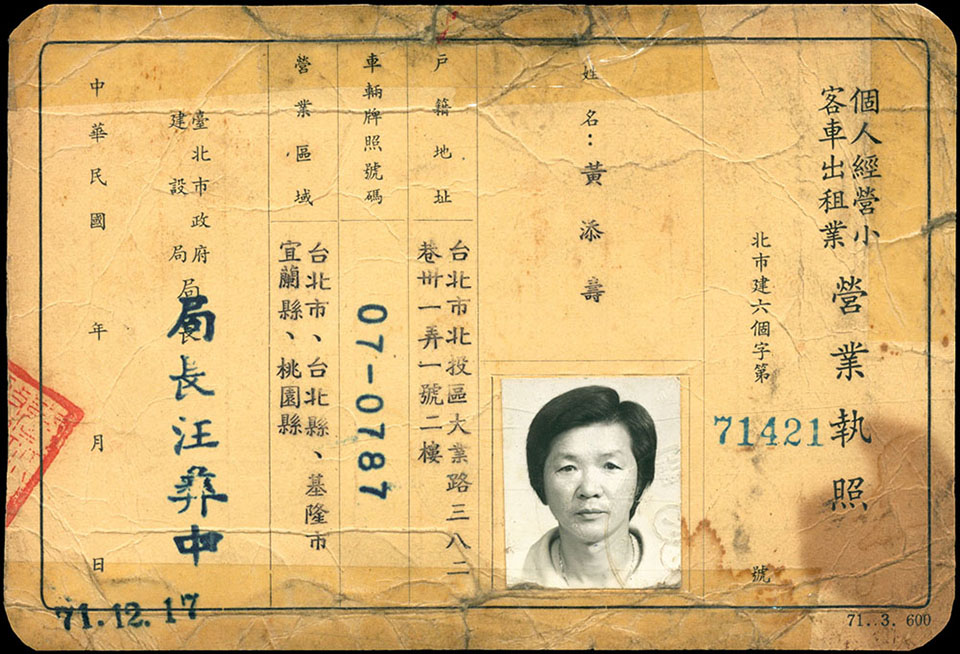 個人經營小
客車出租業
營業執照
北市建六個字第
71421
號
姓名：黃添壽
戶籍地址
台北市北投區大業路三八二
巷卅一弄一號二樓
車輛牌照號碼
07-0787
營業區域
台北市、台北縣、基隆市
宜蘭縣、桃園縣
臺北市政府
建設局
局長
局長汪彝中
中華民國年月日
71.12.17
71..3. 600